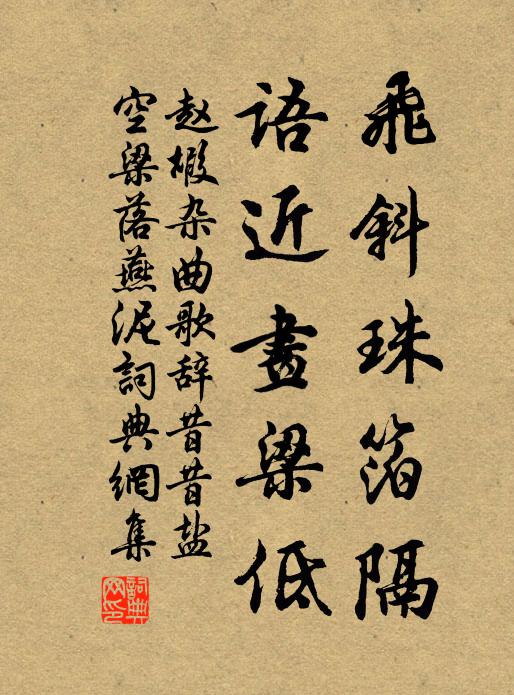 飛斜珠箔隔
語近畫梁低
赵椴杂曲歌辞昔昔盐
空梁落燕泥詞典網集
詞典網印